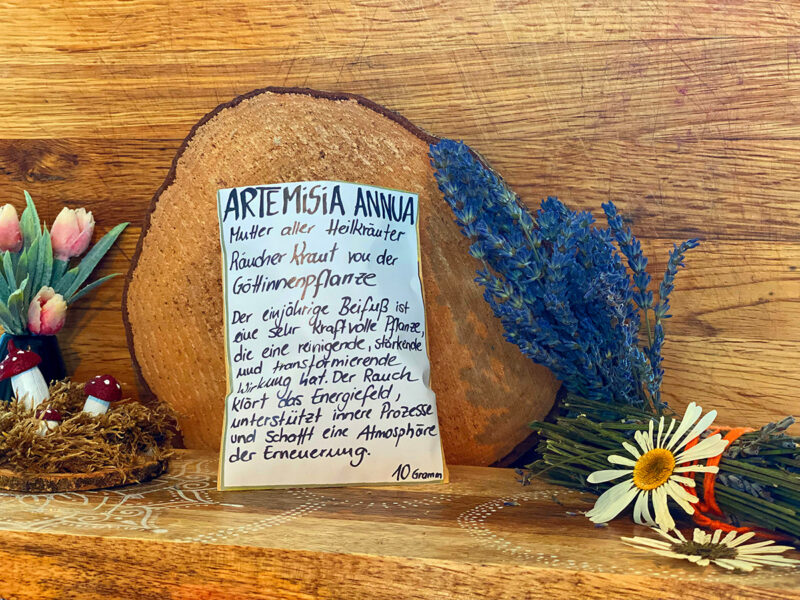 ARTEMiSiA ANNUA
Mutter aller Heilkräuter
Räucher Kraut von der
Göttinnenpflanze
Der einjährige Beifuß ist
eine sehr kraftvolle Pflanze,
die eine reinigende, stärkende
und transformierende
Wirkung hat. Der Rauch
klärt das Energiefeld,
unterstützt innere Prozesse
und schafft eine Atmosphäre
der Erneuerung.
10 Gramm